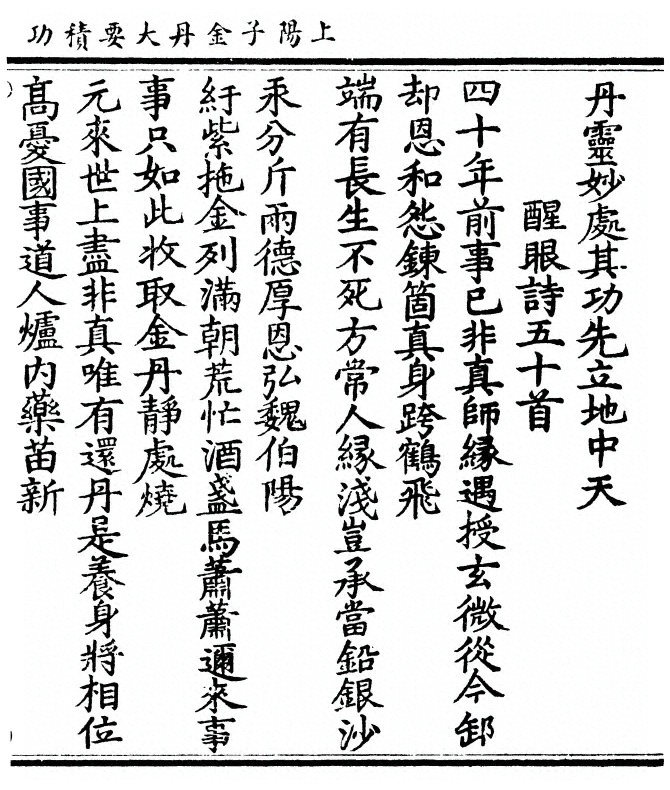 上陽子金丹大要積功
丹靈妙處其功先立地中天
醒眼詩五十首
四十年前事已非真師緣遇授玄微從今卸
却恩和怨鍊箇真身跨鶴飛
端有長生不死方常人緣淺豈承當鉛銀沙
汞分斤兩德厚恩弘魏伯陽
紆紫拖金列滿朝荒忙酒盞馬蕭蕭邇來事
事只如此收取金丹靜處燒
元來世上盡非真唯有還丹是養身將相位
髙憂國事道人爐内藥苗新